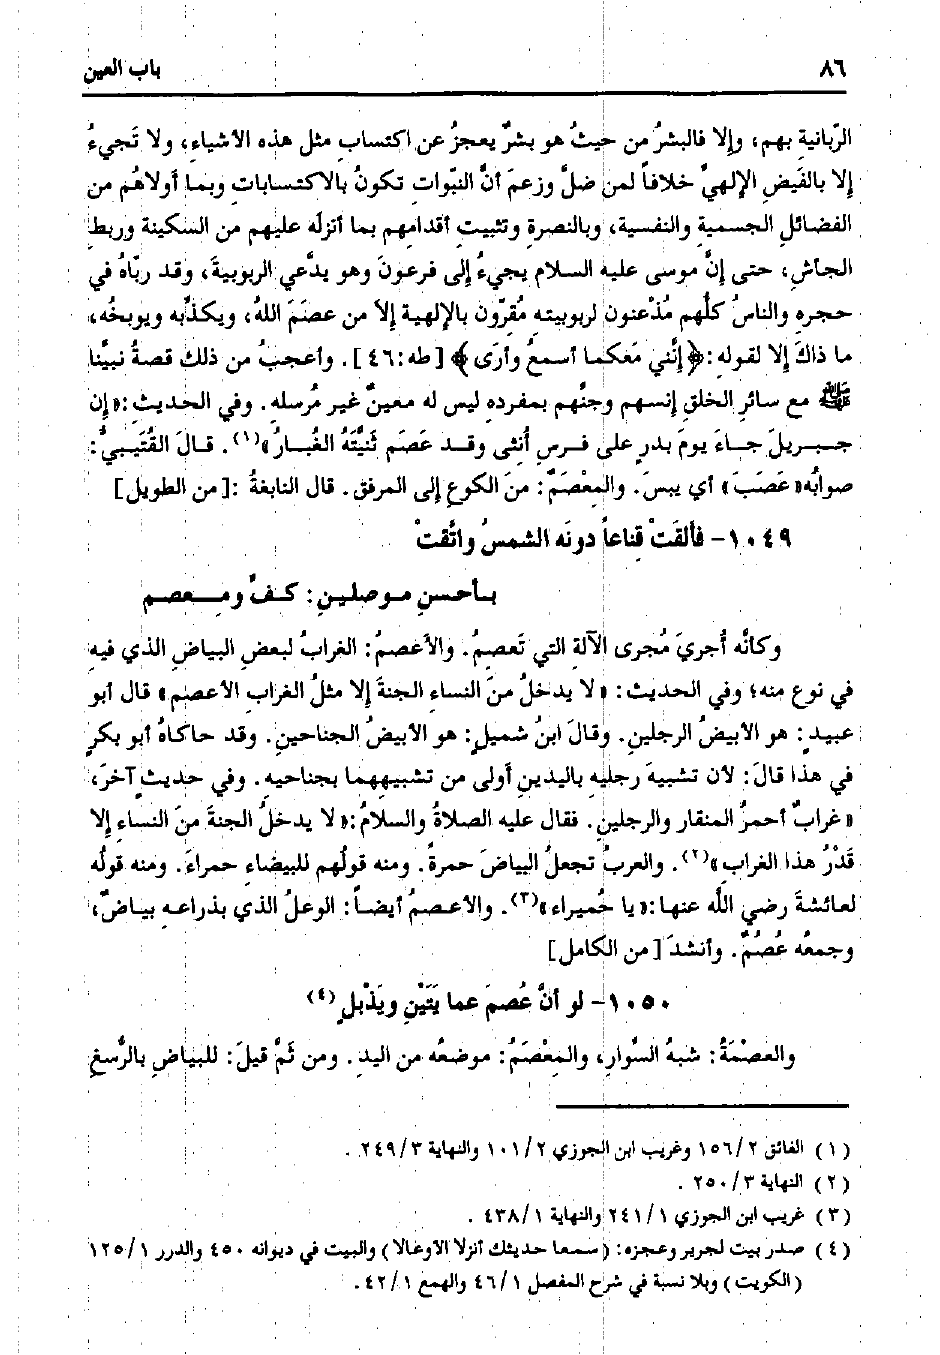 ٨٦ باب العين
الرّبانية بهم، وإلا فالبشرُ من حيثُ هو بشرٌ يعجزُ عن اكتسابِ مثل هذه الأشياءِ، ولا تَجيءُ
إلا بالفَيضِ الإلهيِّ خلافاً لمن ضلَّ وزعمَ أنَّ النبّوات تكونُ بالاكتساباتِ وبما أولاهُم من
الفضائلِ الجسميةِ والنفسيةِ، وبالنصرةِ وتثبيتِ أقدامِهم بما أنزلَه عليهم من السكينة وربطِ
الجاشِ، حتى إنَّ موسى عليه السلام يجيءُ إلى فرعونَ وهو يدَّعي الربوبيةَ، وقد ربّاهُ في
حجرهِ والناسُ كلُّهم مُذْعنون لربوبيتهِ مُقرّون بالإلهية إلاّ من عصَمَ اللهُ، ويكذّبه ويوبخُه،
ما ذاكَ إلا لقوله: ﴿إنَّني مَعكما أسمعُ وأرَى﴾ [طه: ٤٦]. وأعجبُ من ذلك قصةُ نبيِّنا
ﷺ مع سائرِ الخلقِ إنسهم وجنِّهم بمفرده ليس له معينٌ غير مُرسله. وفي الحديث: «إن
جبريلَ جاءَ يومَ بدرٍ على فرسٍ أُنثى وقد عَصَم ثَنِيَّتَهُ الغُبارُ»(١). قالَ القُتَيبيُّ:
صوابُه «عَصَبَ» أي يبسَ. والمِعْصَمُ: منَ الكوعِ إلى المرفق. قال النابغةُ: [من الطويل]
١٠٤٩- فألقَتْ قناعاً دونَه الشمسُ واتَّقتْ
بأحسنِ موصلينِ: كفٍّ ومِعصم
وكأنَّه أُجريَ مُجرى الآلةِ التي تَعصِمُ. والأعصمُ: الغرابُ لبعضِ البياضِ الذي فيهِ
في نوع منه؛ وفي الحديث: «لا يدخلُ منَ النساءِ الجنةَ إلا مثلُ الغرابِ الأعصمِ» قال أبو
عبيدٍ: هو الأبيضُ الرجلينِ. وقالَ ابنُ شميلٍ: هو الأبيضُ الجناحينِ. وقد حاكاهُ أبو بكرٍ
في هذا قالَ: لأن تشبيهَ رجليهِ باليدينِ أولى من تشبيههما بجناحيهِ. وفي حديثٍ آخرَ،
«غرابٌ أحمرُ المنقار والرجلينِ. فقال عليه الصلاةُ والسلامُ: «لا يدخلُ الجنةَ منَ النساءِ إلا
قَدْرُ هذا الغراب»(٢). والعربُ تجعلُ البياضَ حمرةً. ومنه قولُهم للبيضاءِ حمراءَ. ومنه قولُه
لعائشةَ رضي اللّه عنها: «يا حُميراء»(٣). والأعصمُ أيضاً: الوعلُ الذي بذراعهِ بياضٌ،
وجمعُه عُصُمٌ. وأنشدَ [من الكامل]
١٠٥٠- لو أنَّ عُصمَ عما يَتَيْنِ ويَذْبلٍ(٤)
والعصْمَةُ: شبهُ السِّوارِ، والمِعْصَمُ: موضعُه من اليدِ. ومن ثَمَّ قيلَ: للبياضِ بالرُّسغِ
(١) الفائق ٢/١٥٦ وغريب ابن الجوزي ٢/١٠١ والنهاية ٣/٢٤٩.
(٢) النهاية ٣/٢٥٠.
(٣) غريب ابن الجوزي ١/٢٤١ والنهاية ١/٤٣٨.
(٤) صدر بيت لجرير وعجزه: (سمعا حديثك أنزلا الأوعالا) والبيت في ديوانه ٤٥٠ والدرر ١/١٢٥
(الكويت) وبلا نسبة في شرح المفصل ١/٤٦ والهمع ١/٤٢.